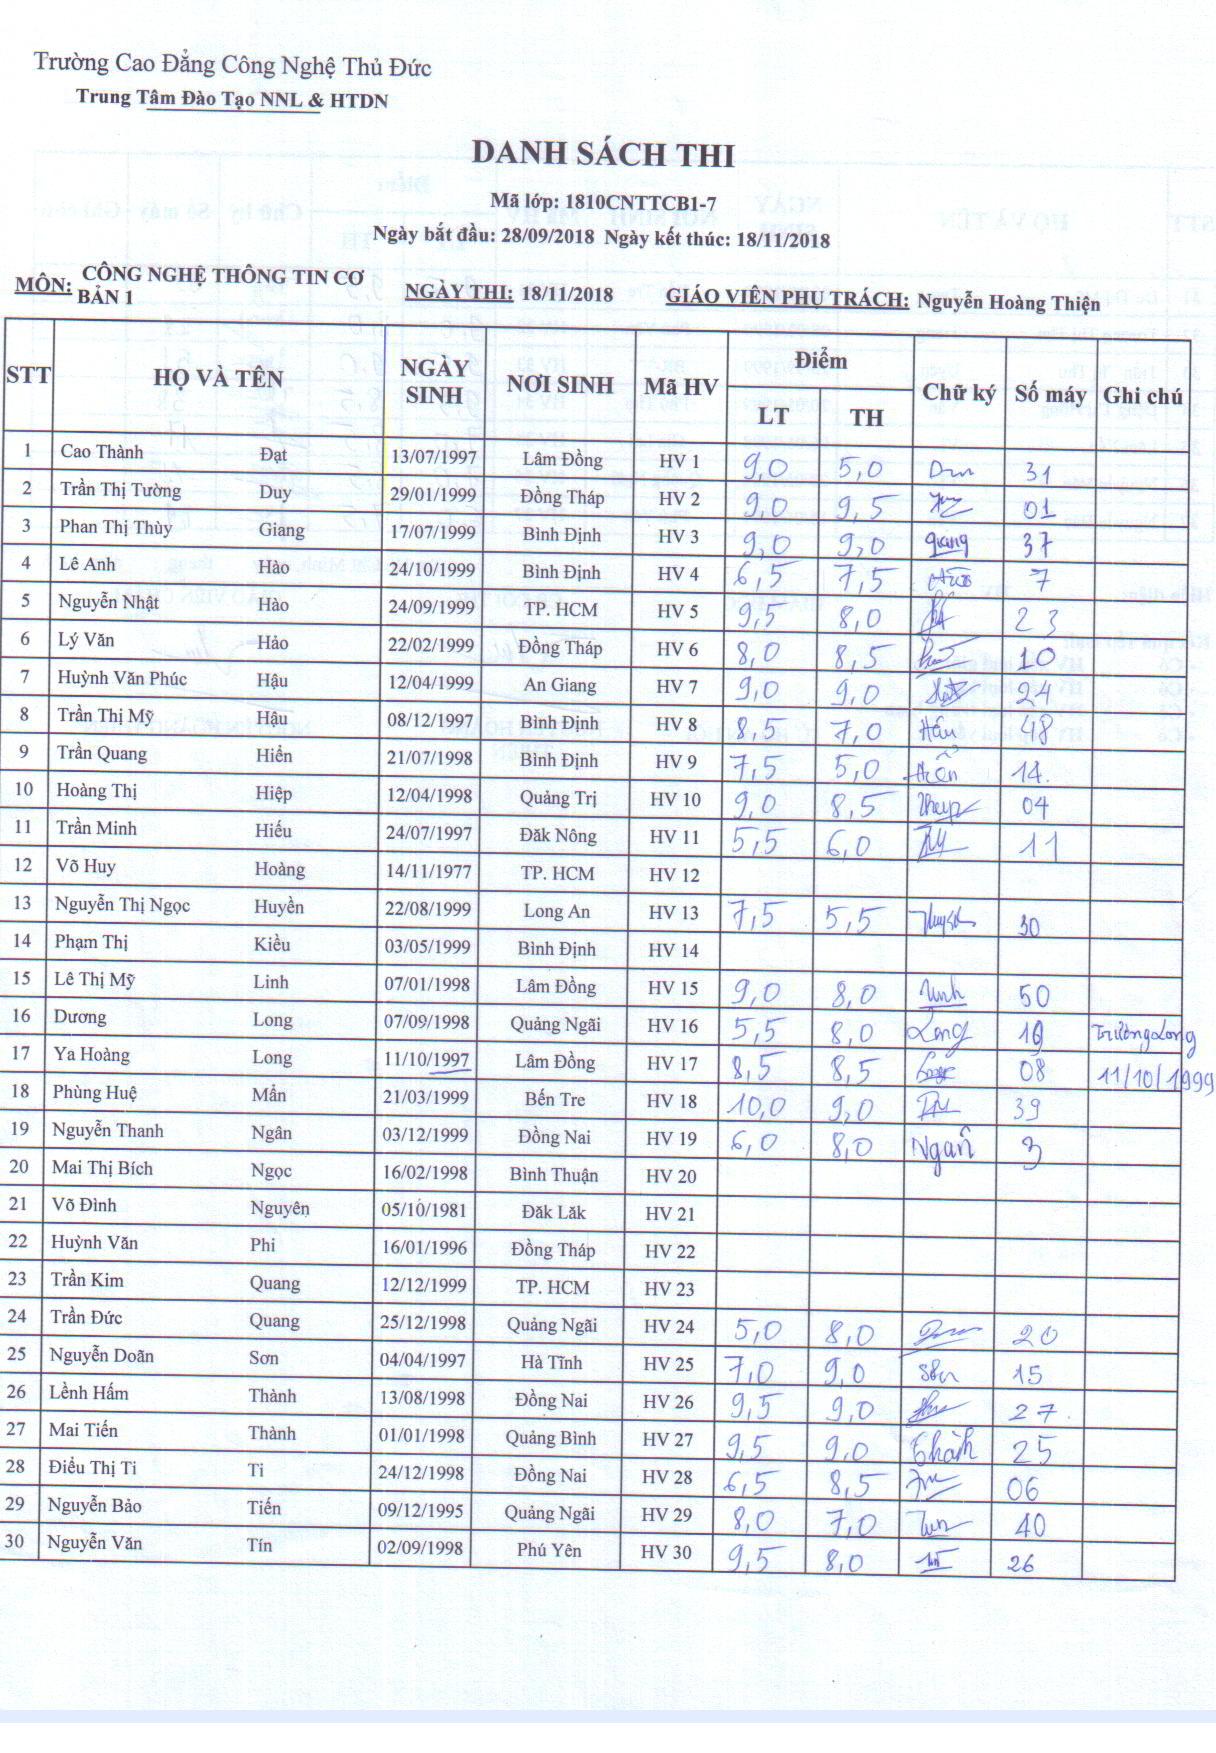 Trường Cao Đẳng Công Nghệ Thủ Đức
Trung Tâm Đào Tạo NNL & HTDN
DANH SÁCH THI
Mã lớp: 1810CNTTCB1-7
Ngày bắt đầu: 28/09/2018 Ngày kết thúc: 18/11/2018
MÔN: CÔNG NGHỆ THÔNG TIN CƠ BẢN 1 NGÀY THI: 18/11/2018 GIÁO VIÊN PHỤ TRÁCH: Nguyễn Hoàng Thiện
STT HỌ VÀ TÊN NGÀY SINH NƠI SINH Mã HV Điểm LT TH Chữ ký Số máy Ghi chú
1 Cao Thành Đạt 13/07/1997 Lâm Đồng HV 1 9,0 5,0 31
2 Trần Thị Tường Duy 29/01/1999 Đồng Tháp HV 2 9,0 9,5 01
3 Phan Thị Thùy Giang 17/07/1999 Bình Định HV 3 9,0 9,0 giang 37
4 Lê Anh Hào 24/10/1999 Bình Định HV 4 6,5 7,5 7
5 Nguyễn Nhật Hào 24/09/1999 TP. HCM HV 5 9,5 8,0 23
6 Lý Văn Hảo 22/02/1999 Đồng Tháp HV 6 8,0 8,5 10
7 Huỳnh Văn Phúc Hậu 12/04/1999 An Giang HV 7 9,0 9,0 24
8 Trần Thị Mỹ Hậu 08/12/1997 Bình Định HV 8 8,5 7,0 Hậu 48
9 Trần Quang Hiển 21/07/1998 Bình Định HV 9 7,5 5,0 Hiển 14.
10 Hoàng Thị Hiệp 12/04/1998 Quảng Trị HV 10 9,0 8,5 04
11 Trần Minh Hiếu 24/07/1997 Đăk Nông HV 11 5,5 6,0 11
12 Võ Huy Hoàng 14/11/1977 TP. HCM HV 12
13 Nguyễn Thị Ngọc Huyền 22/08/1999 Long An HV 13 7,5 5,5 30
14 Phạm Thị Kiều 03/05/1999 Bình Định HV 14
15 Lê Thị Mỹ Linh 07/01/1998 Lâm Đồng HV 15 9,0 8,0 50
16 Dương Long 07/09/1998 Quảng Ngãi HV 16 5,5 8,0 Long 19 Trường Long
17 Ya Hoàng Long 11/10/1997 Lâm Đồng HV 17 8,5 8,5 08 11/10/1999
18 Phùng Huệ Mẩn 21/03/1999 Bến Tre HV 18 10,0 9,0 39
19 Nguyễn Thanh Ngân 03/12/1999 Đồng Nai HV 19 6,0 8,0 Ngân 3
20 Mai Thị Bích Ngọc 16/02/1998 Bình Thuận HV 20
21 Võ Đình Nguyên 05/10/1981 Đăk Lăk HV 21
22 Huỳnh Văn Phi 16/01/1996 Đồng Tháp HV 22
23 Trần Kim Quang 12/12/1999 TP. HCM HV 23
24 Trần Đức Quang 25/12/1998 Quảng Ngãi HV 24 5,0 8,0 20
25 Nguyễn Doãn Sơn 04/04/1997 Hà Tĩnh HV 25 7,0 9,0 Sơn 15
26 Lềnh Hấm Thành 13/08/1998 Đồng Nai HV 26 9,5 9,0 27.
27 Mai Tiến Thành 01/01/1998 Quảng Bình HV 27 9,5 9,0 thành 25
28 Điểu Thị Ti Ti 24/12/1998 Đồng Nai HV 28 6,5 8,5 06
29 Nguyễn Bảo Tiến 09/12/1995 Quảng Ngãi HV 29 8,0 7,0 40
30 Nguyễn Văn Tín 02/09/1998 Phú Yên HV 30 9,5 8,0 26